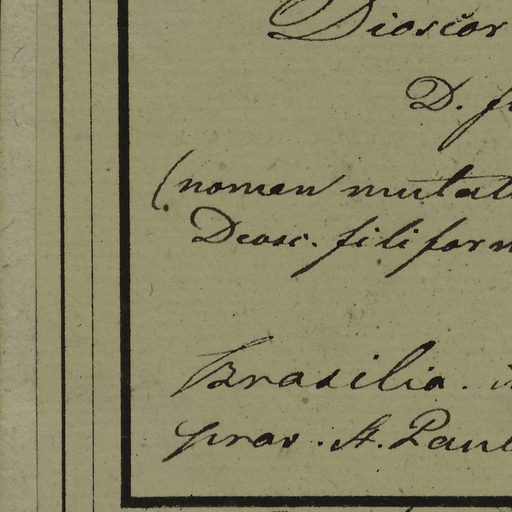 Dioscor
D. f
(nomen mutat
Diosc. filiform
Brasilia.
prov. S. Paul